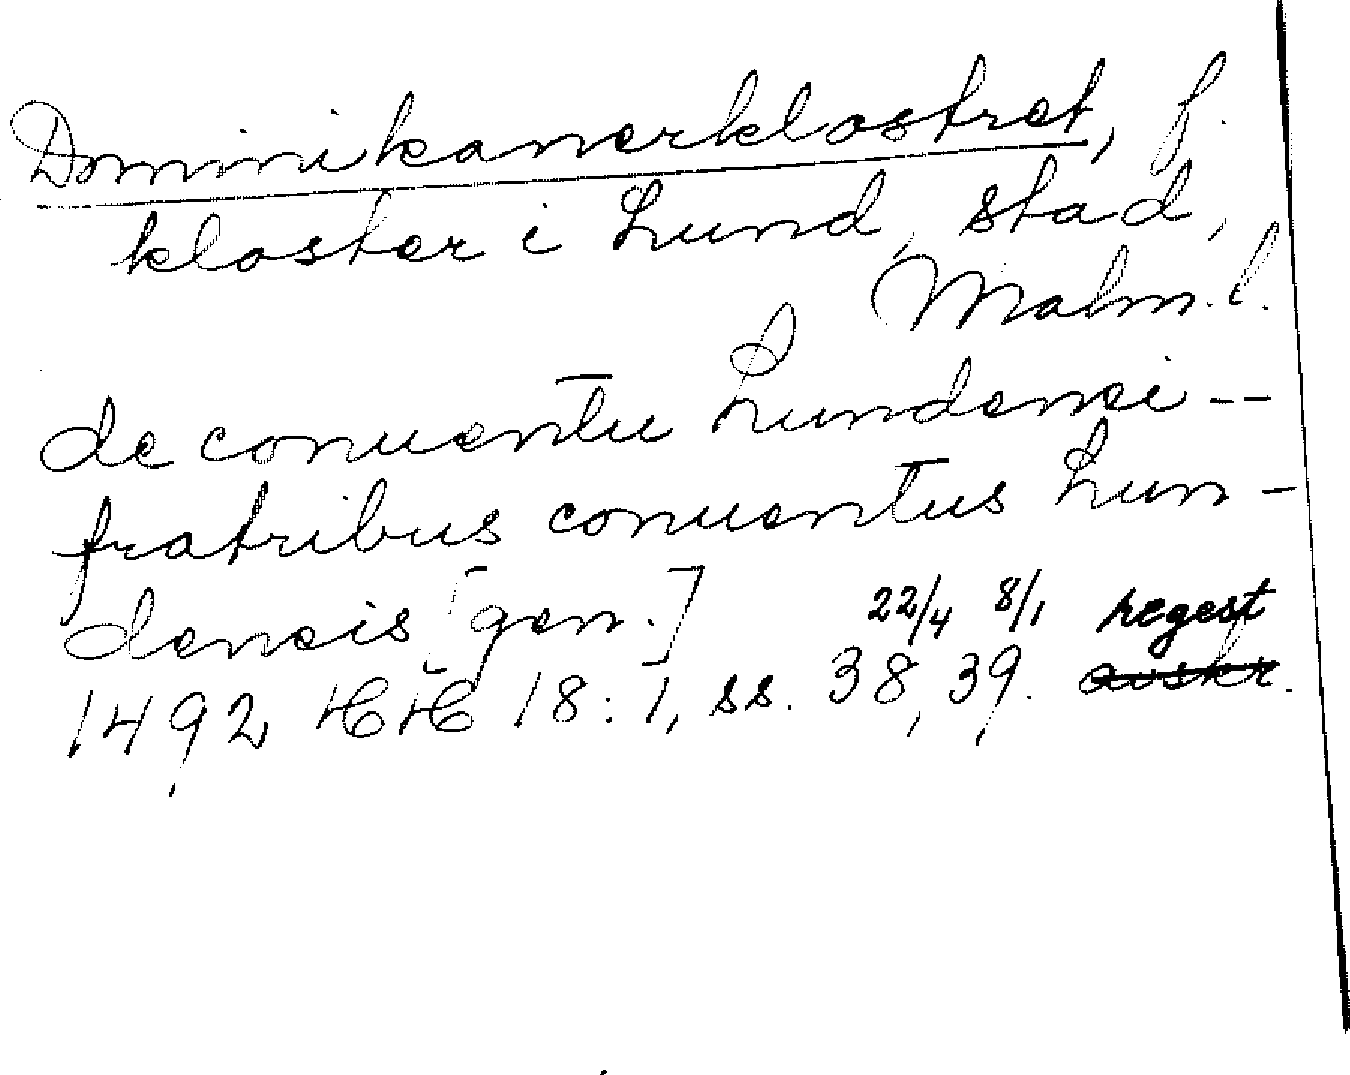 Dominikanerklostret, f.
kloster i Lund, stad,
Malm. l.
de conuentu Lundensi --
fratribus conuentus Lun-
densis [gen.] 22/4 8/1 regest
1492 HH 18:1, ss. 38, 39. avskr.